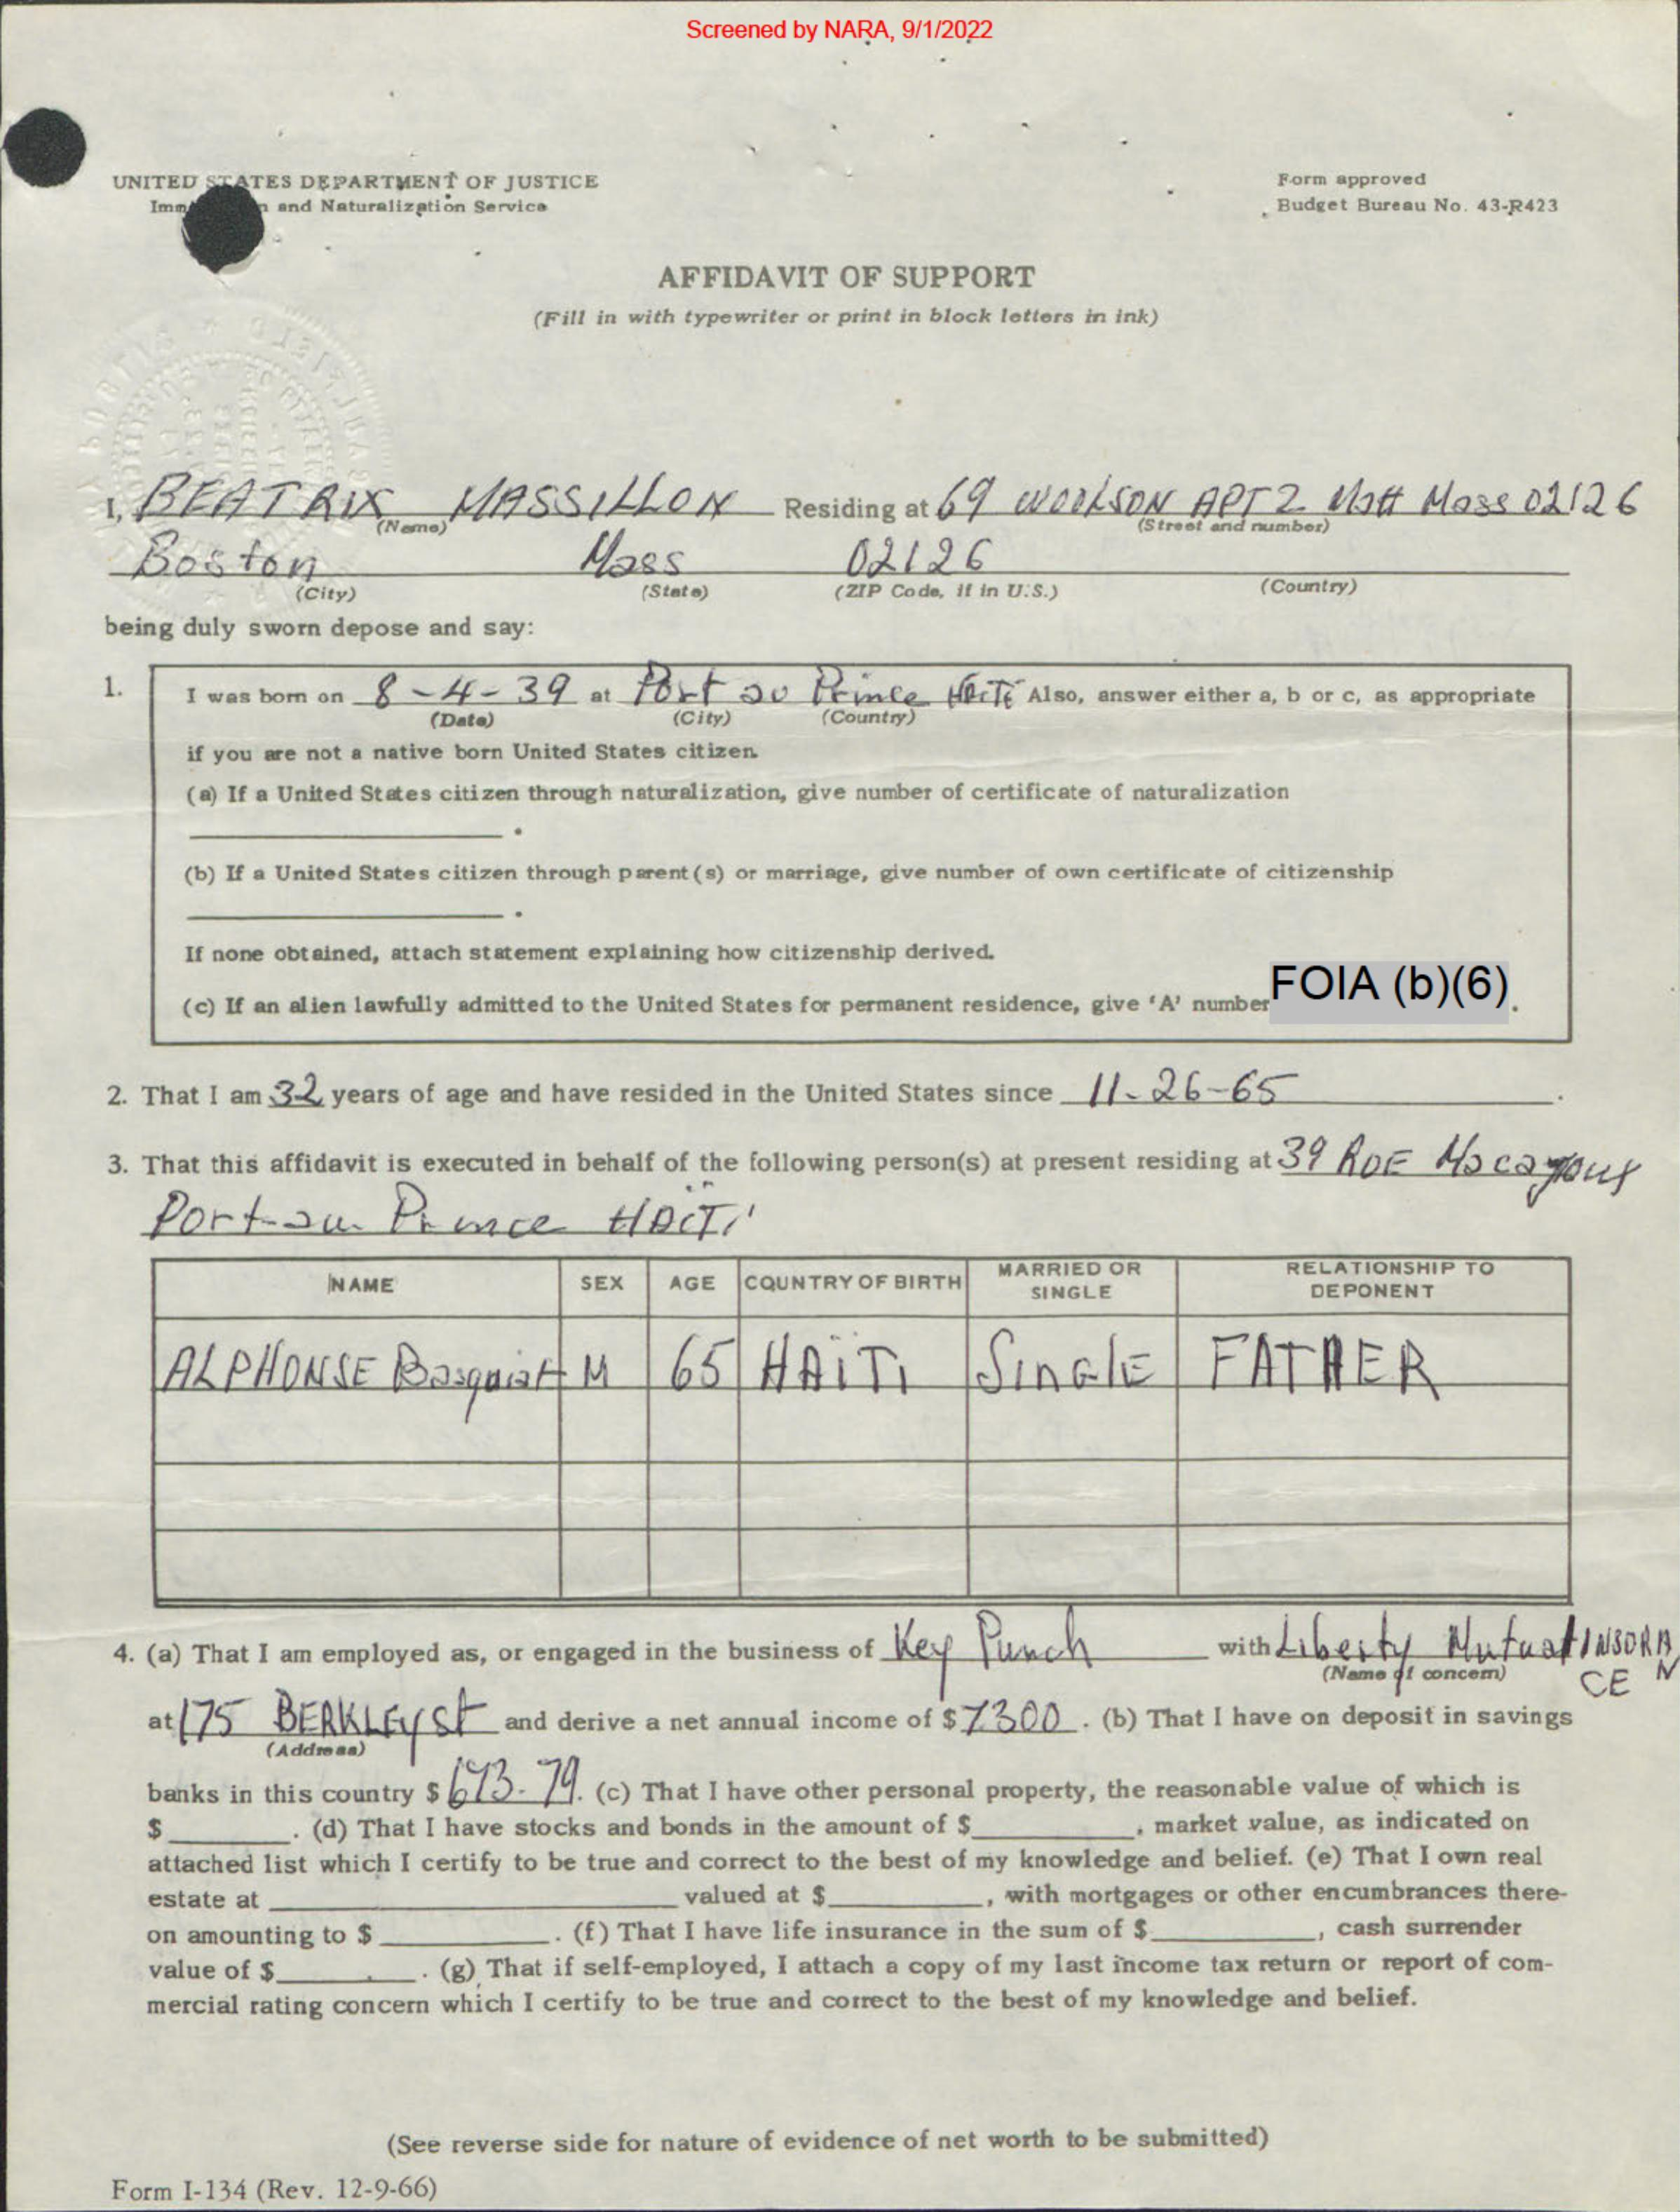 Screened by NARA, 9/1/2022
UNITED STATES DEPARTMENT OF JUSTICE
Imm n and Naturalization Service
Form approved
Budget Bureau No. 43-R423
AFFIDAVIT OF SUPPORT
(Fill in with typewriter or print in block letters in ink)
I, BEATRIX MASSILLON Residing at 69 WOOLSON APT 2 Matt Mass 02126
(Name) (Street and number)
Boston Mass 02126
(City) (State) (ZIP Code, if in U.S.) (Country)
being duly sworn depose and say:
1. I was born on 8-4-39 at Port au Prince Haiti Also, answer either a, b or c, as appropriate
(Date) (City) (Country)
if you are not a native born United States citizen.
(a) If a United States citizen through naturalization, give number of certificate of naturalization
.
(b) If a United States citizen through parent(s) or marriage, give number of own certificate of citizenship
.
If none obtained, attach statement explaining how citizenship derived.
(c) If an alien lawfully admitted to the United States for permanent residence, give 'A' number FOIA (b)(6).
2. That I am 32 years of age and have resided in the United States since 11-26-65.
3. That this affidavit is executed in behalf of the following person(s) at present residing at 39 RUE
Port-au Prince HAITI
NAME SEX AGE COUNTRY OF BIRTH MARRIED OR SINGLE RELATIONSHIP TO DEPONENT
ALPHONSE Basquiat M 65 HAÏTI SinGlE FATHER
4. (a) That I am employed as, or engaged in the business of Key Punch with Liberty Mutual INSURAN
(Name of concern) CE
at 175 BERKLEy st and derive a net annual income of $ 7300. (b) That I have on deposit in savings
(Address)
banks in this country $ 673.79. (c) That I have other personal property, the reasonable value of which is
$ . (d) That I have stocks and bonds in the amount of $ , market value, as indicated on
attached list which I certify to be true and correct to the best of my knowledge and belief. (e) That I own real
estate at valued at $ , with mortgages or other encumbrances there-
on amounting to $ . (f) That I have life insurance in the sum of $ , cash surrender
value of $ . (g) That if self-employed, I attach a copy of my last income tax return or report of com-
mercial rating concern which I certify to be true and correct to the best of my knowledge and belief.
(See reverse side for nature of evidence of net worth to be submitted)
Form I-134 (Rev. 12-9-66)